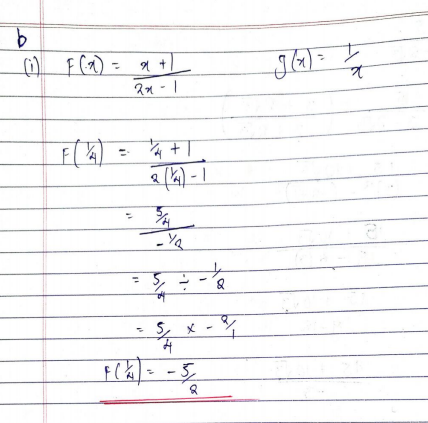 b
(i) F(x) = x + 1 / 2x - 1    g(x) = 1/x
F(1/4) = 1/4 + 1 / 2(1/4) - 1
= 5/4 / -1/2
= 5/4 ÷ -1/2
= 5/4 x -2/1
F(1/4) = -5/2